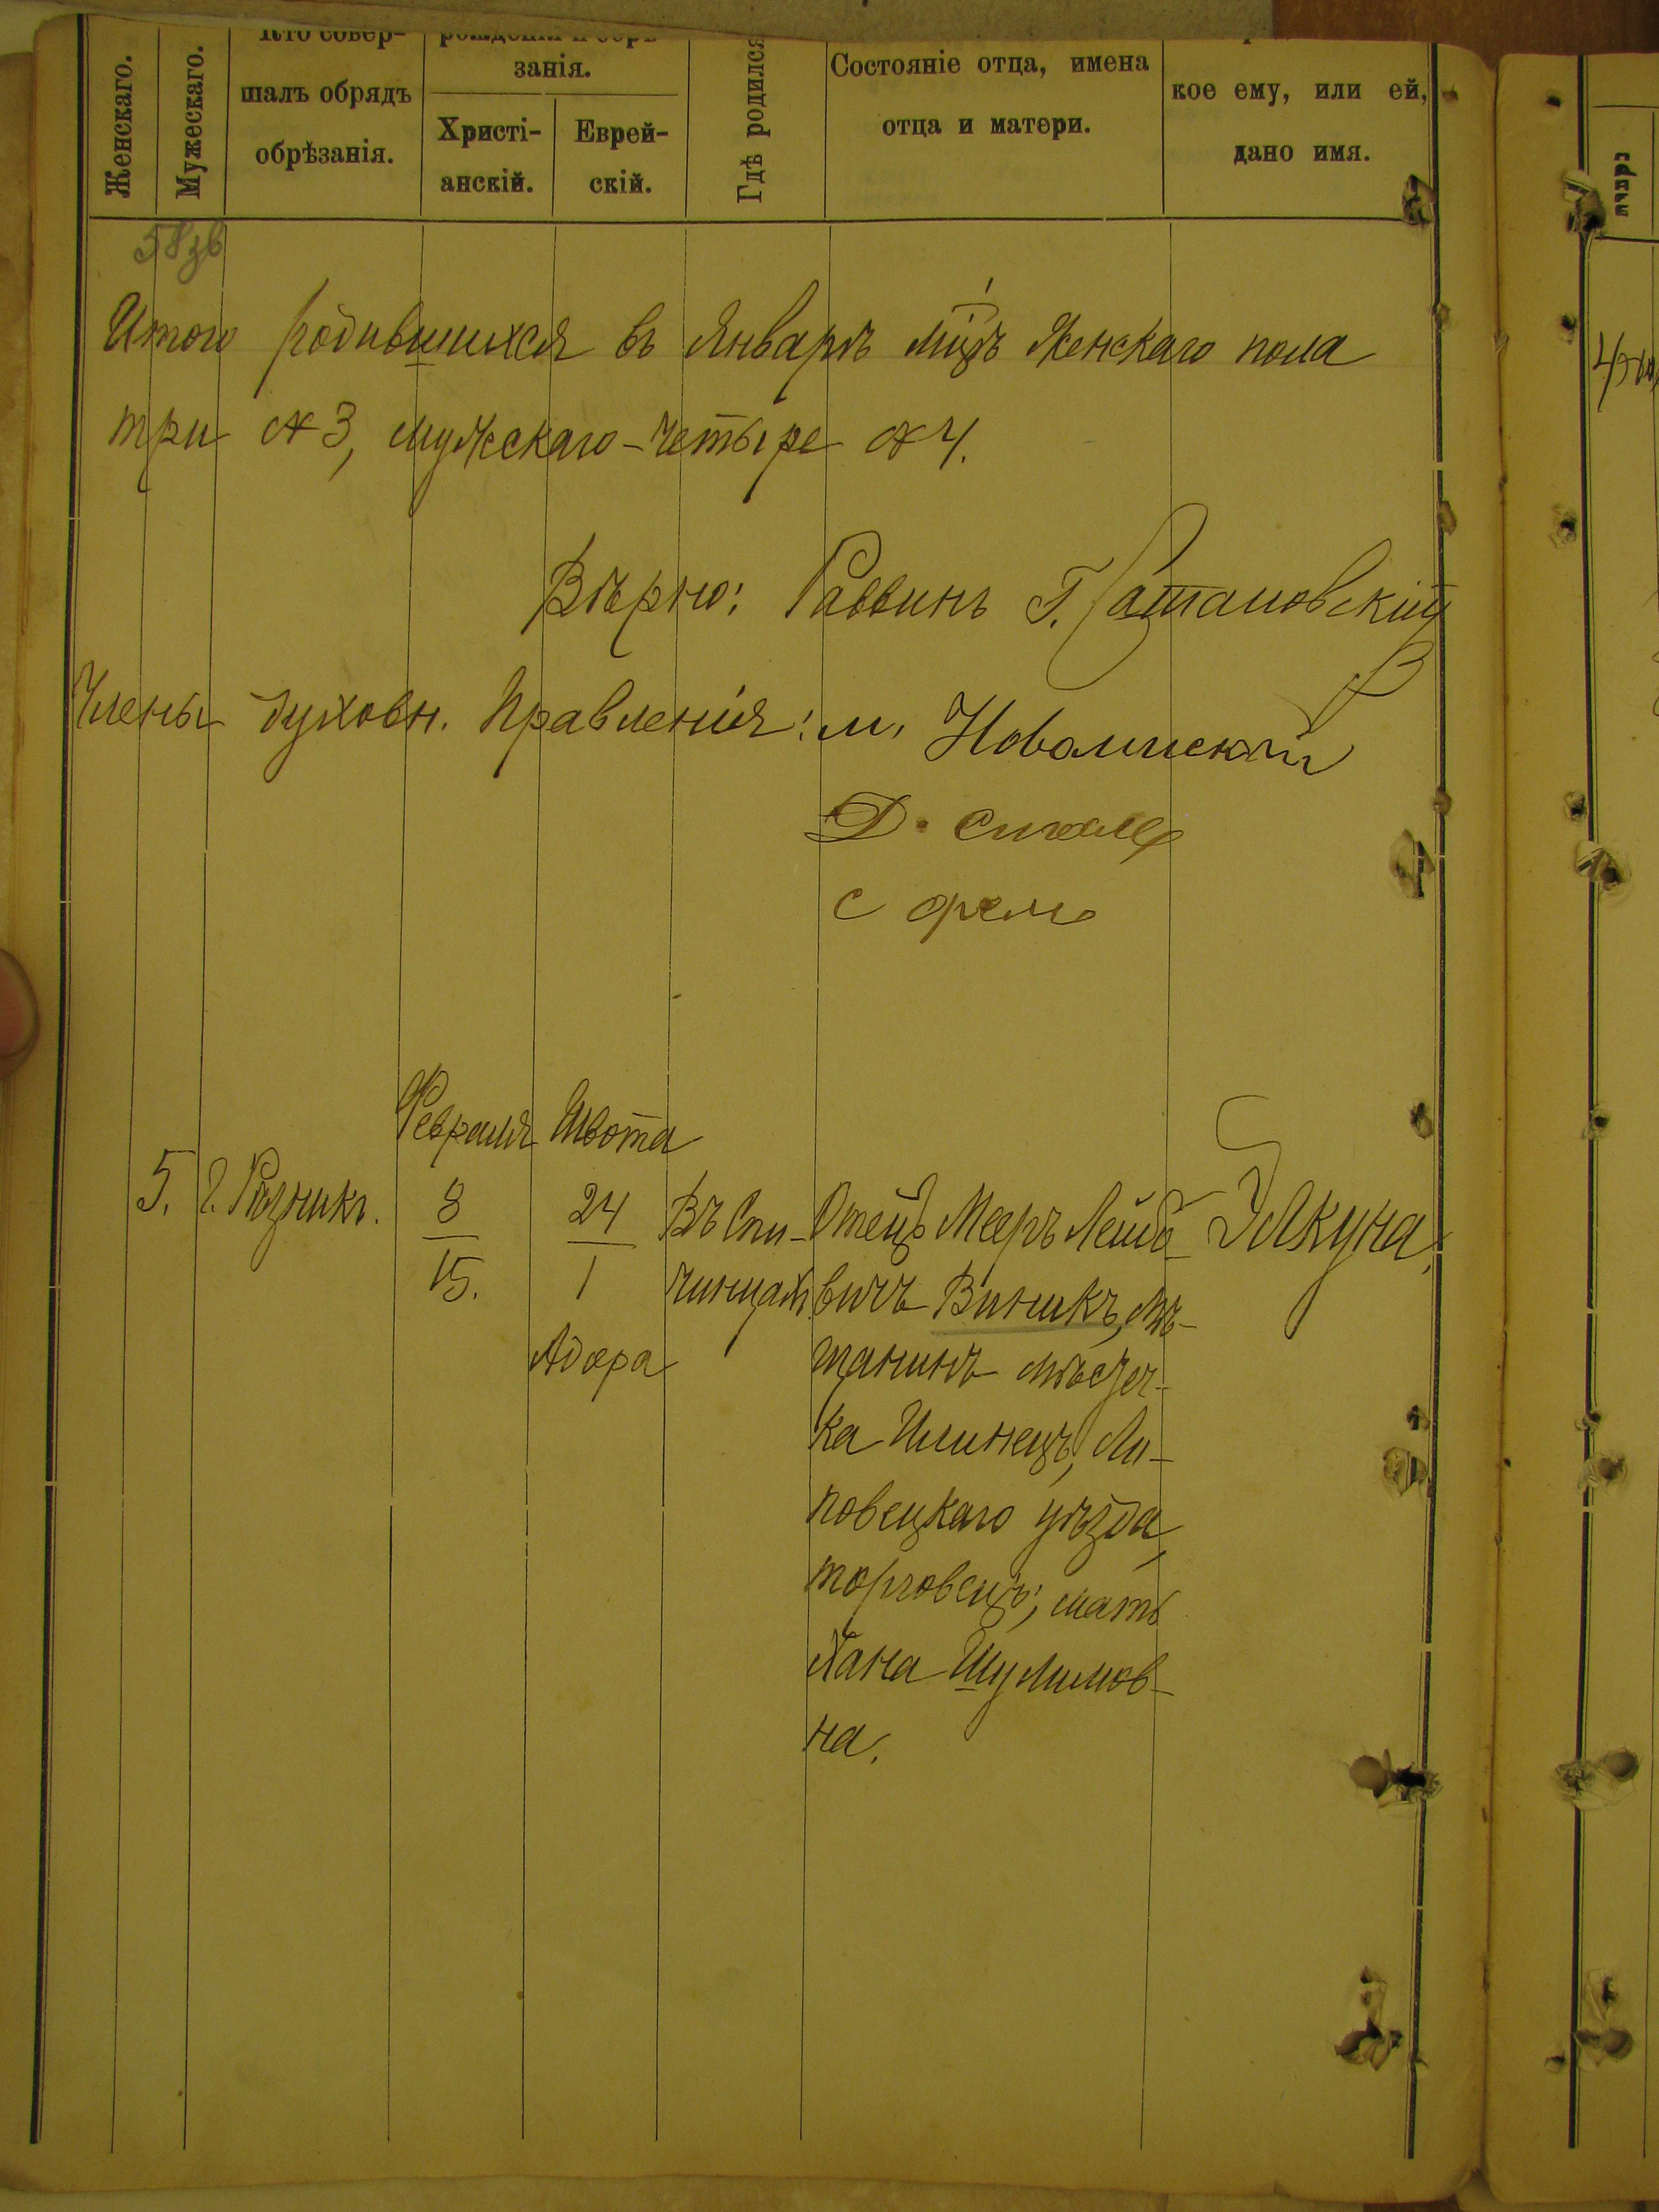 Женскаго.
Мужескаго.
Кто совер-
шалъ обрядъ
обрѣзанія.
рожденія и обрѣ-
занія.
Христі-
анскій.
Еврей-
скій.
Гдѣ родился
Состояніе отца, имена
отца и матери.
кое ему, или ей,
дано имя.
58зв
Итого родившихся въ Январѣ мцѣ женскаго пола
три №3, мужскаго-четыре №4.
Вѣрно: Раввинъ Г.
Члены духовн. Правленія: М.
Д.
С
Февраля
Швота
5.
Г. Разникъ.
8
15.
24
1
Адара
Въ Спи-
чинцахъ
Отецъ Мееръ Лейбо-
вичъ Виникъ, мѣ-
щанинъ мѣстеч-
ка Илинецъ, Ли-
повецкаго уѣзда,
торговецъ; мать
Хана Шулимов-
на.
Элкуна.